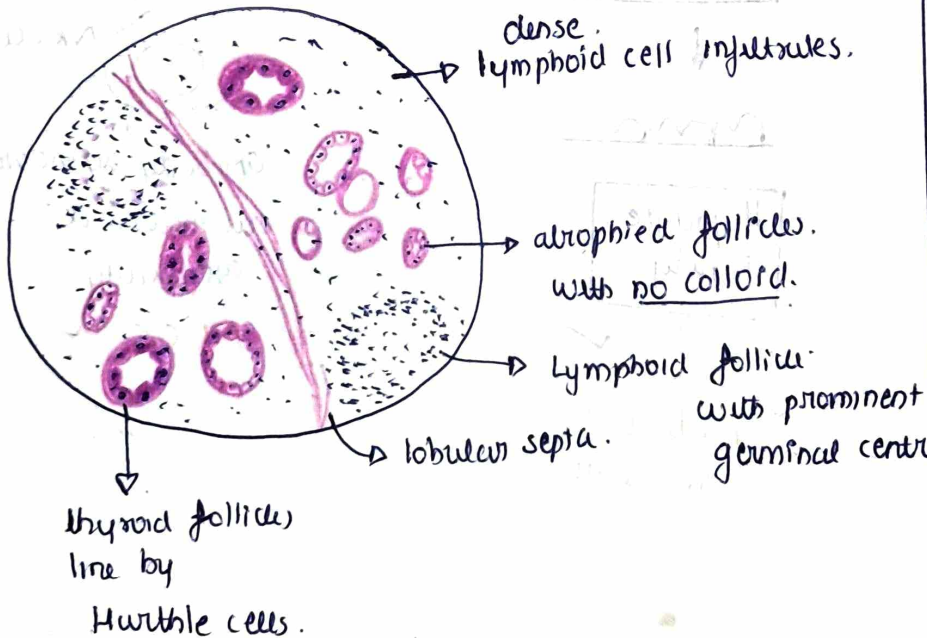 dense.
lymphoid cell infiltrules.
atrophied follicles.
with no colloid.
Lymphoid follicle
with prominent
germinal centr
lobular septa.
thyroid follicles
line by
Hurthle cells.